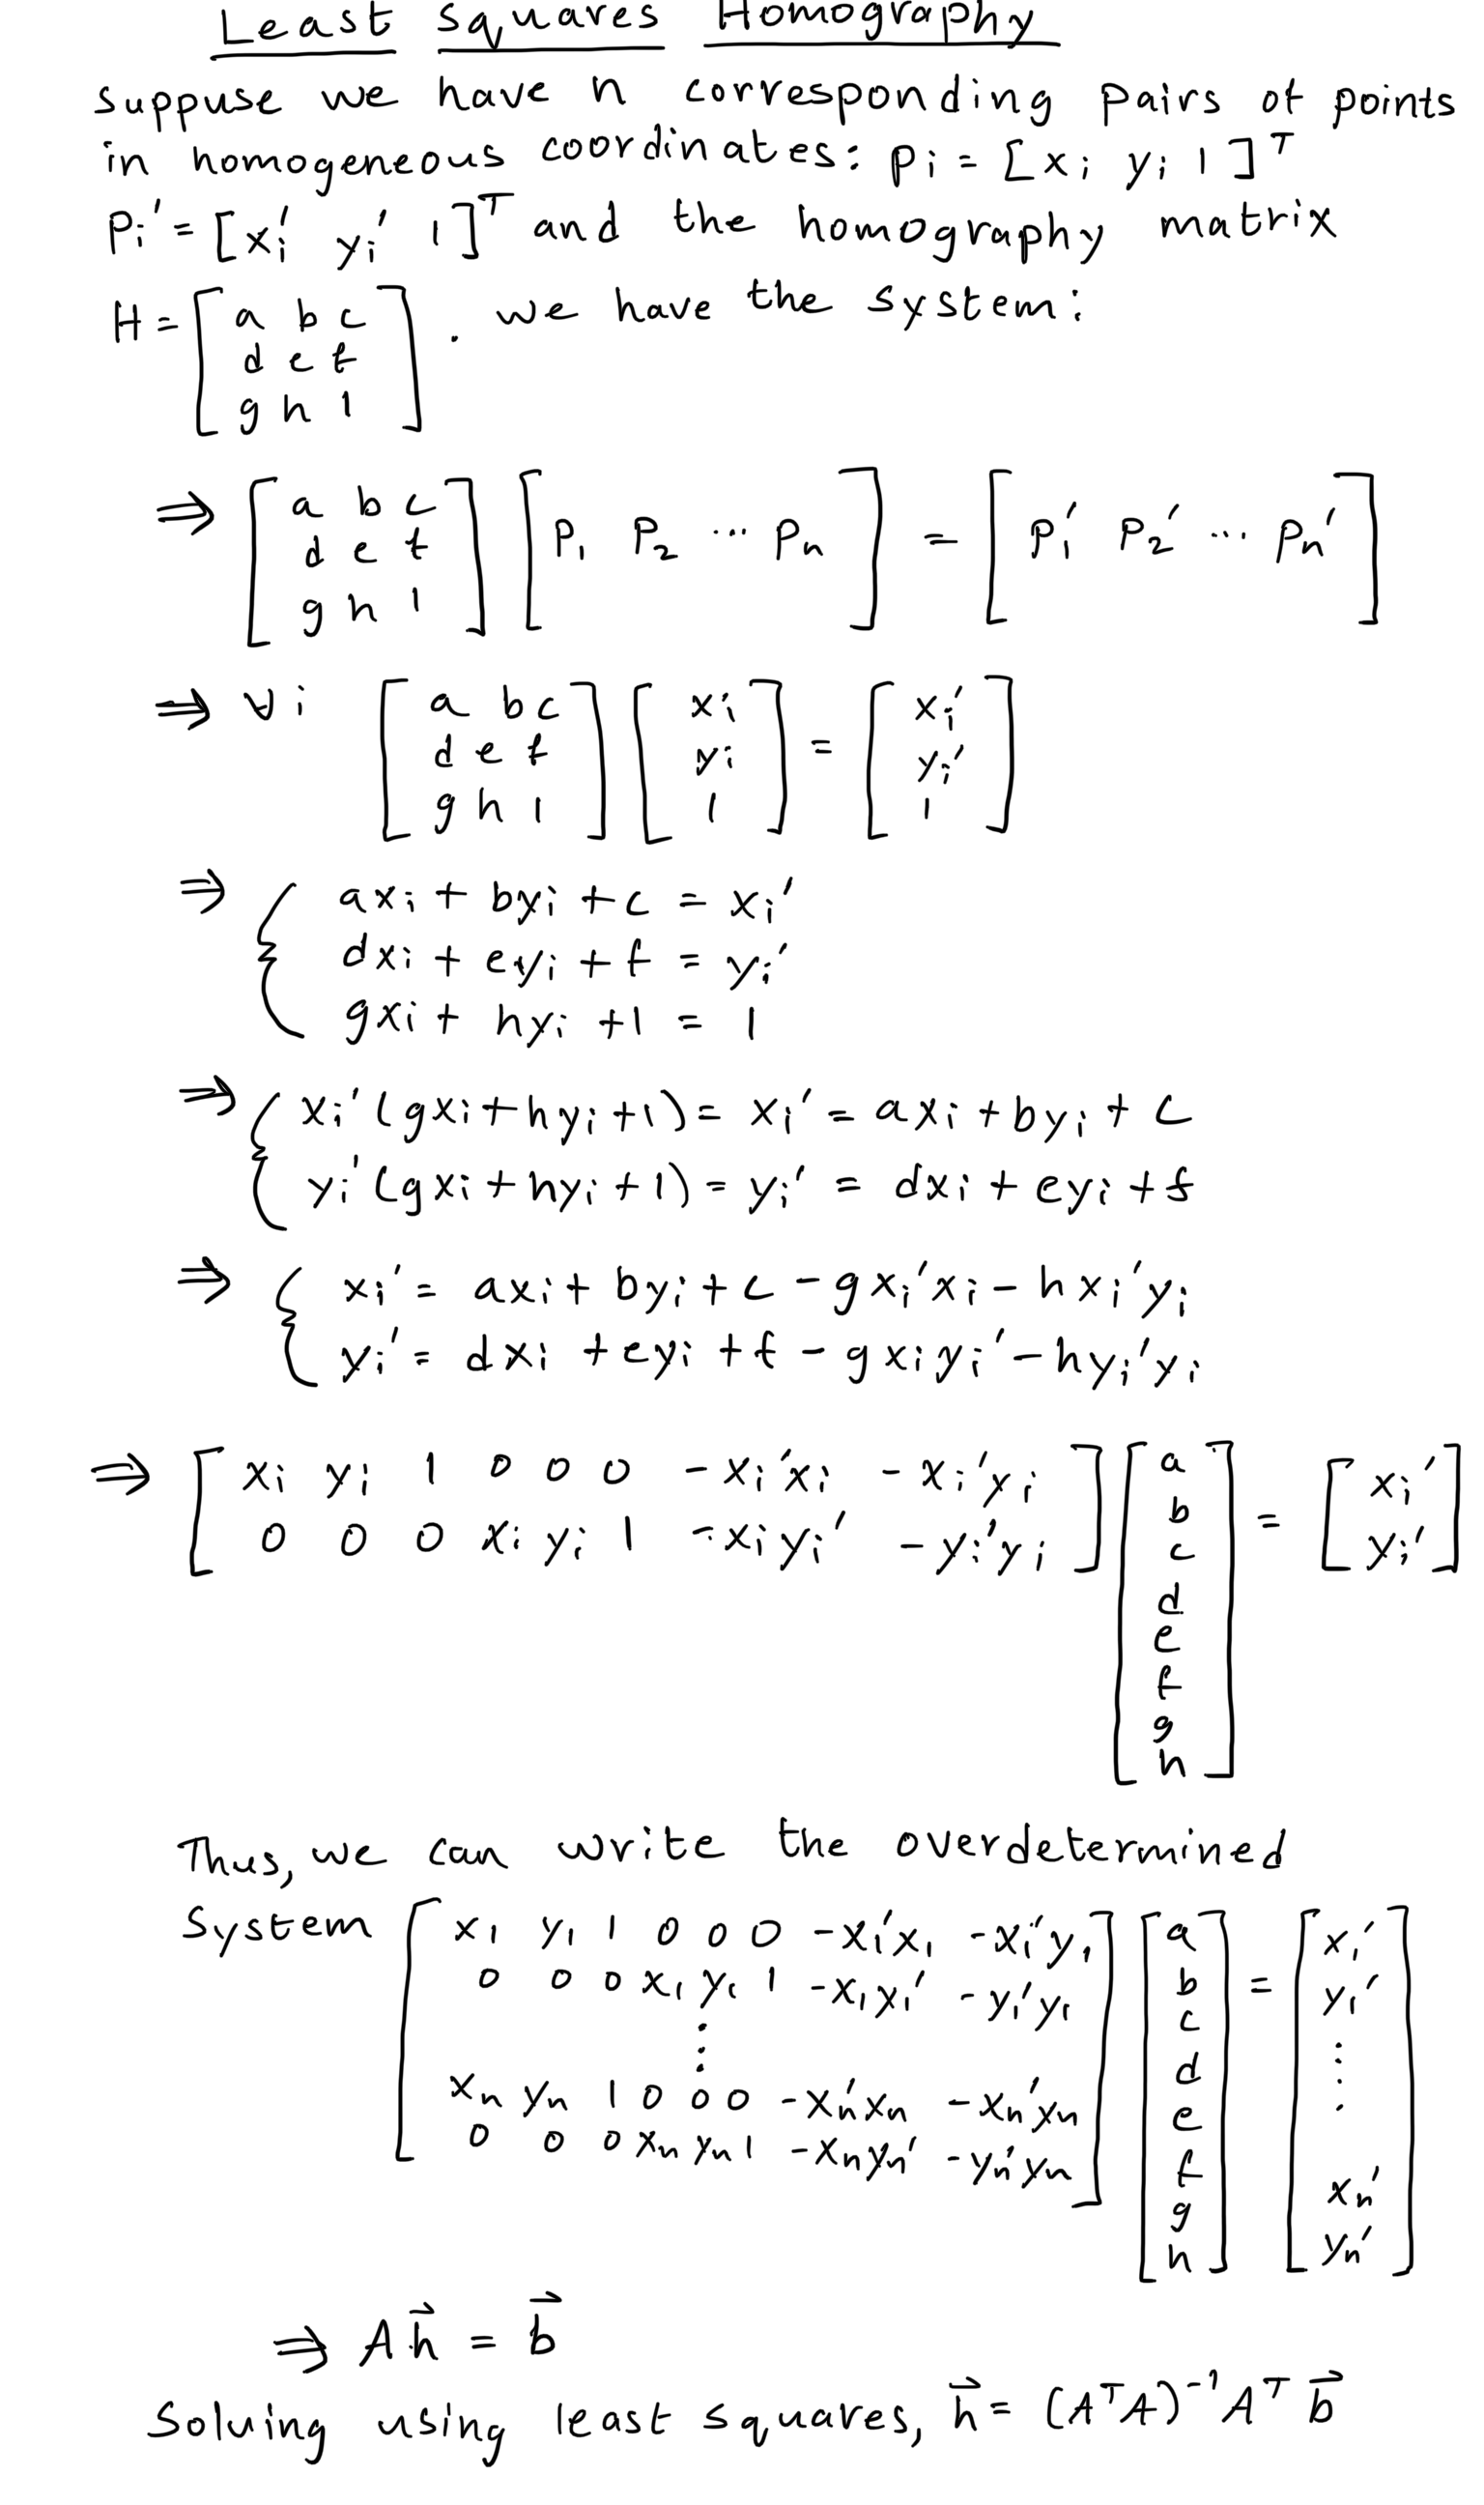 Least squares Homography
suppuse we have n corresponding pairs of points
in homogeneous coordinates: pi = [xi yi 1]ᵀ
Pi' = [xi' yi' 1]ᵀ and the homography matrix
H = [a b c; d e f; g h 1]. we have the system:
⇒ [a b c; d e f; g h 1] [P1 P2 ... Pn] = [P1' P2' ... Pn']
⇒ ∀i [a b c; d e f; g h 1] [xi; yi; 1] = [xi'; yi'; 1]
⇒ { axi + byi + c = xi'
dxi + eyi + f = yi'
gxi + hyi + 1 = 1
⇒ { xi'(gxi + hyi + 1) = xi' = axi + byi + c
yi'(gxi + hyi + 1) = yi' = dxi + eyi + f
⇒ { xi' = axi + byi + c - gxi'xi - hxi'yi
yi' = dxi + eyi + f - gxiyi' - hyi'yi
⇒ [xi yi 1 0 0 0 -xi'xi -xi'yi; 0 0 0 xi yi 1 -xiyi' -yi'yi] [a; b; c; d; e; f; g; h] = [xi'; yi']
Thus, we can write the overdetermined
system [x1 y1 1 0 0 0 -x1'x1 -x1'y1; 0 0 0 x1 y1 1 -x1y1' -y1'y1; ⋮; xn yn 1 0 0 0 -xn'xn -xn'yn; 0 0 0 xn yn 1 -xnyn' -yn'yn] [a; b; c; d; e; f; g; h] = [x1'; y1'; ⋮; xn'; yn']
⇒ Ah⃗ = b⃗
Solving using least squares, h⃗ = (AᵀA)⁻¹Aᵀb⃗